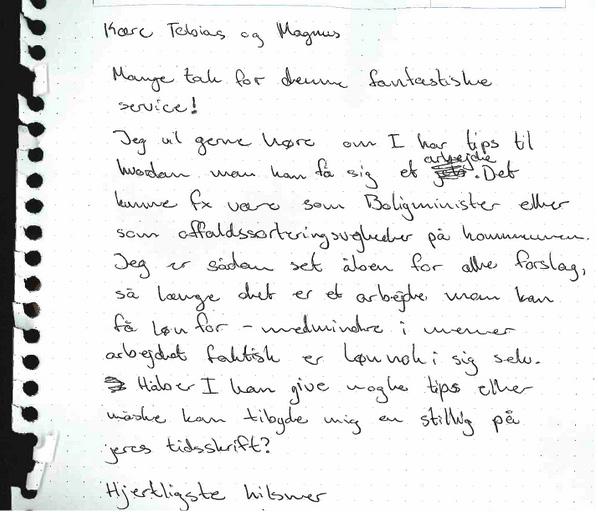 Kære Tobias og Magnus
Mange tak for denne fantastiske
service!
Jeg vil gerne høre om I har tips til
hvordan man kan få sig et arbejde. Det
kunne fx være som Boligminister eller
som affaldssorteringsvejleder på kommunen.
Jeg er sådan set åben for alle forslag,
så længe det er et arbejde man kan
få løn for - medmindre i mener
arbejdet faktisk er løn nok i sig selv.
Håber I kan give nogle tips eller
måske kan tilbyde mig en stilling på
jeres tidsskrift?
Hjertligste hilsner